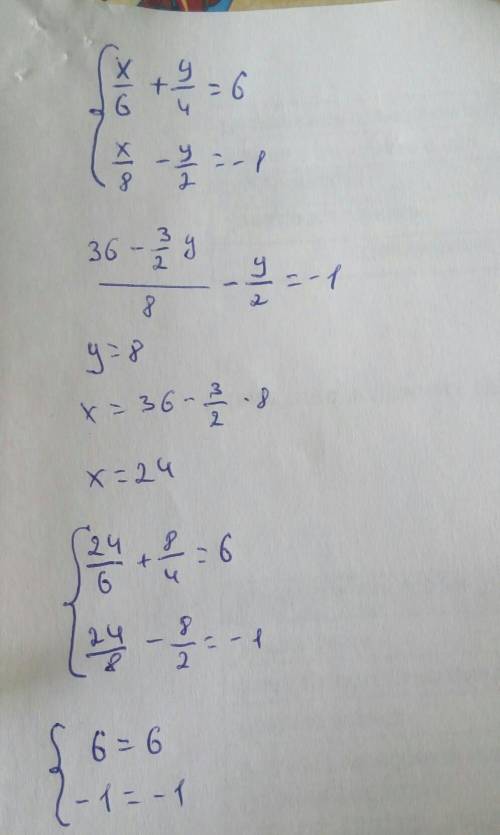 { x/6 + y/4 = 6
x/8 - y/2 = -1
(36 - 3/2 y)/8 - y/2 = -1
y = 8
x = 36 - 3/2 · 8
x = 24
{ 24/6 + 8/4 = 6
24/8 - 8/2 = -1
{ 6 = 6
-1 = -1